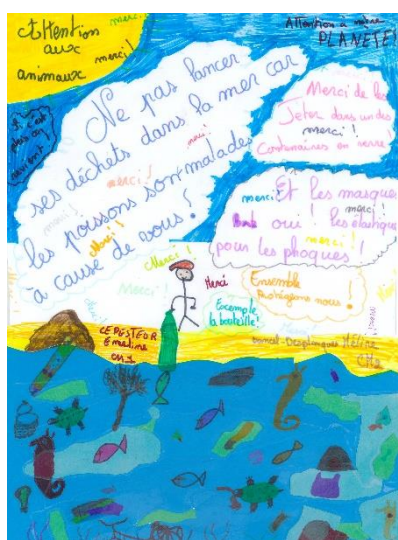 Attention
aux
animaux
merci!
merci!
Attention à notre
PLANETE!
Ne pas lancer
ses déchets dans la mer car
les poissons sont malades
à cause de vous!
merci!
merci!
Merci!
Merci de les
Jeter dans un des
merci!
Contenaires en verre!
merci!
Et les masques
merci!
oui! les élastiques
merci!
pour les phoques!
Merci!
Merci!
Merci
Ensemble
Protégeons nous!
Exemple
la bouteille!
Emeline
CM1
Héline
CM2